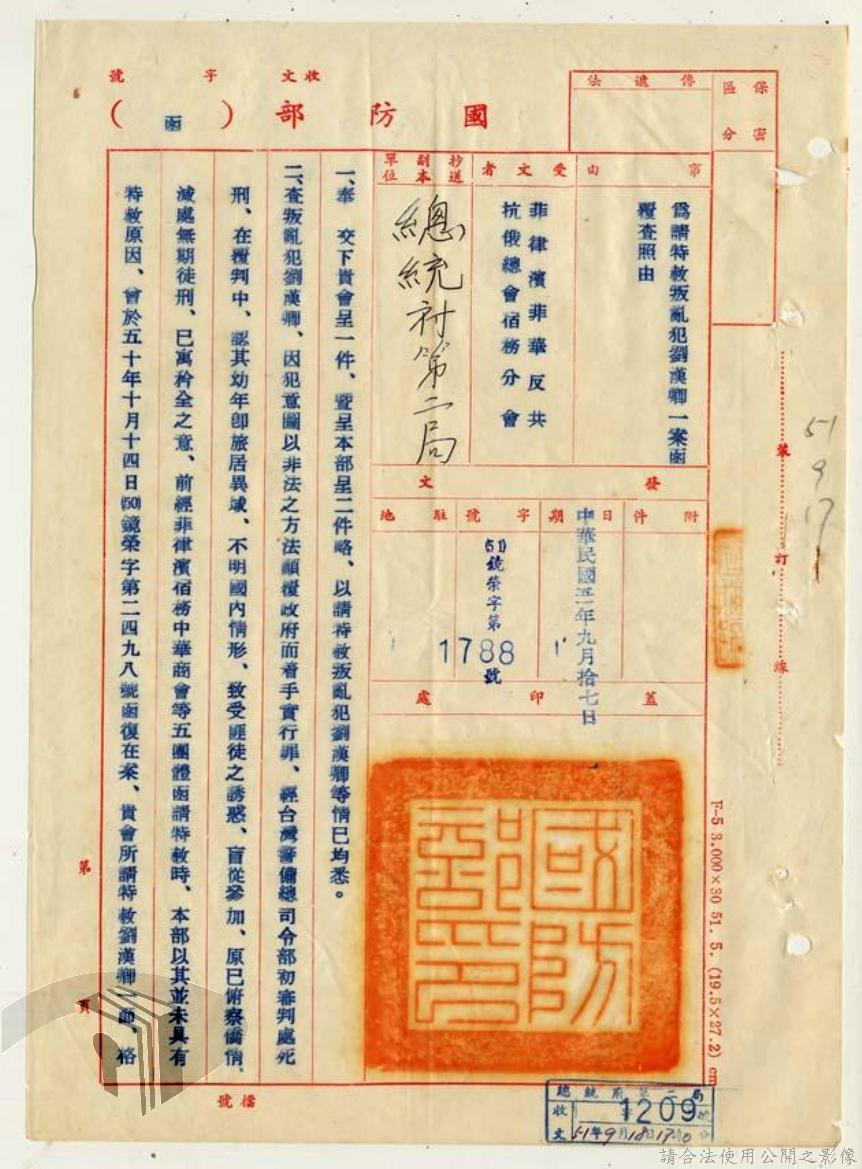 收文 字 號
國防部(函)
保密區分
傳遞法
事由
為請特赦叛亂犯劉漢卿一案函
覆查照由
受文者
菲律濱菲華反共
抗俄總會宿務分會
抄送副本單位
總統府第二局
發文
附件
日期
中華民國五一年九月拾七日
字號
(51)銑榮字第
1788
號
駐地
蓋印處
國防部印
一、奉 交下貴會呈一件、暨呈本部呈二件略、以請特赦叛亂犯劉漢卿等情已均悉。
二、查叛亂犯劉漢卿、因犯意圖以非法之方法顛覆政府而着手實行罪、經台灣警備總司令部初審判處死
刑、在覆判中、認其幼年卽旅居異域、不明國內情形、致受匪徒之誘惑、盲從參加、原已俯察僑情、
減處無期徒刑、已寓矜全之意、前經菲律濱宿務中華商會等五團體函請特赦時、本部以其並未具有
特赦原因、曾於五十年十月十四日(50)鏡榮字第二四九八號函復在案、貴會所請特赦劉漢卿一節、格
第 頁
檔號
裝 訂 線
51
9
17
F-5 3.000×30 51. 5. (19.5×27.2) cm
總統府第二局
收文 字 1209 號
51年9月18日17時0分
請合法使用公開之影像